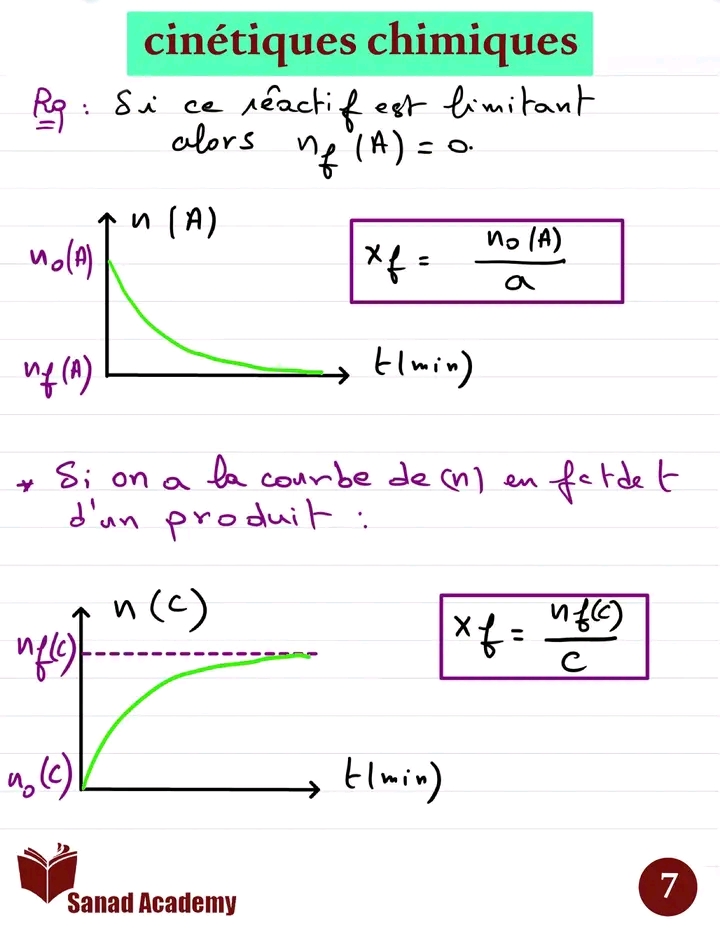 cinétiques chimiques
Rq : Si ce réactif est limitant
alors n_f (A) = 0.
n (A)
n₀(A)
x_f = n₀(A) / a
n_f (A)
t(min)
* Si on a la courbe de (n) en fct de t
d'un produit :
n (C)
n_f(C)
x_f = n_f(C) / c
n₀(C)
t(min)
Sanad Academy
7